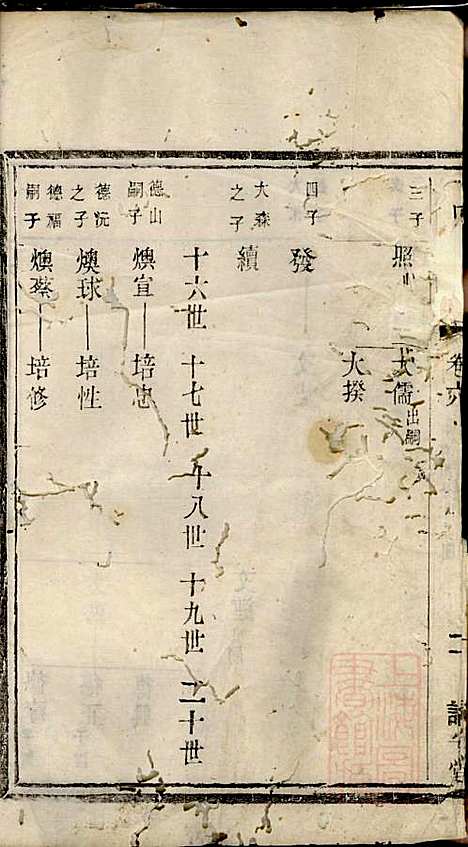 卷六
三子 照 大儒 出嗣
大揆
四子 發
大森之子 續
十六世 十七世 十八世 十九世 二十世
德山嗣子 燠宜 培忠
德沅之子 燠球 培性
德福嗣子 燠蔡 培修